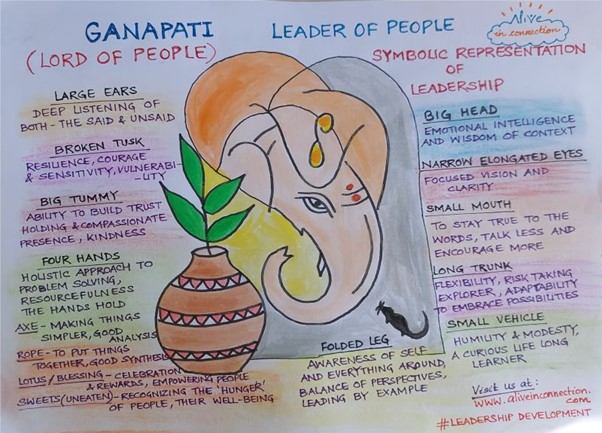 GANAPATI
(LORD OF PEOPLE)
LEADER OF PEOPLE
Alive
in connection
SYMBOLIC REPRESENTATION
OF
LEADERSHIP
LARGE EARS
DEEP LISTENING OF
BOTH - THE SAID & UNSAID
BROKEN TUSK
RESILIENCE, COURAGE
& SENSITIVITY, VULNERABI-
-LITY
BIG TUMMY
ABILITY TO BUILD TRUST
HOLDING & COMPASSIONATE
PRESENCE, KINDNESS
FOUR HANDS
HOLISTIC APPROACH TO
PROBLEM SOLVING,
RESOURCEFULNESS
THE HANDS HOLD
AXE - MAKING THINGS
SIMPLER, GOOD
ANALYSIS
ROPE - TO PUT THINGS
TOGETHER, GOOD SYNTHESIS
LOTUS / BLESSING - CELEBRATION
& REWARDS, EMPOWERING PEOPLE
SWEETS (UNEATEN) - RECOGNIZING THE 'HUNGER'
OF PEOPLE, THEIR WELL-BEING
FOLDED LEG
AWARENESS OF SELF
AND EVERYTHING AROUND,
BALANCE OF PERSPECTIVES,
LEADING BY EXAMPLE
BIG HEAD
EMOTIONAL INTELLIGENCE
AND WISDOM OF CONTEXT
NARROW ELONGATED EYES
FOCUSED VISION AND
CLARITY
SMALL MOUTH
TO STAY TRUE TO THE
WORDS, TALK LESS AND
ENCOURAGE MORE
LONG TRUNK
FLEXIBILITY, RISK TAKING
EXPLORER, ADAPTABILITY
TO EMBRACE POSSIBILITIES
SMALL VEHICLE
HUMILITY & MODESTY,
A CURIOUS LIFE LONG
LEARNER
Visit us at:
www.aliveinconnection.
com
#LEADERSHIP DEVELOPMENT